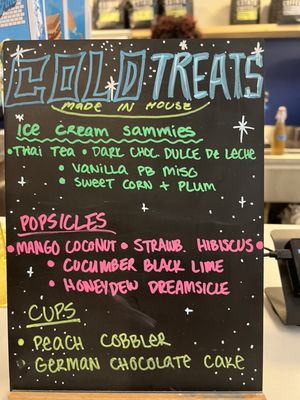 COLD TREATS
MADE IN HOUSE
ICE CREAM SAMMIES
• THAI TEA • DARK CHOC DULCE DE LECHE
• VANILLA PB MISO
• SWEET CORN + PLUM
POPSICLES
• MANGO COCONUT • STRAWB. HIBISCUS •
• CUCUMBER BLACK LIME
• HONEYDEW DREAMSICLE
CUPS
• PEACH COBBLER
• GERMAN CHOCOLATE CAKE